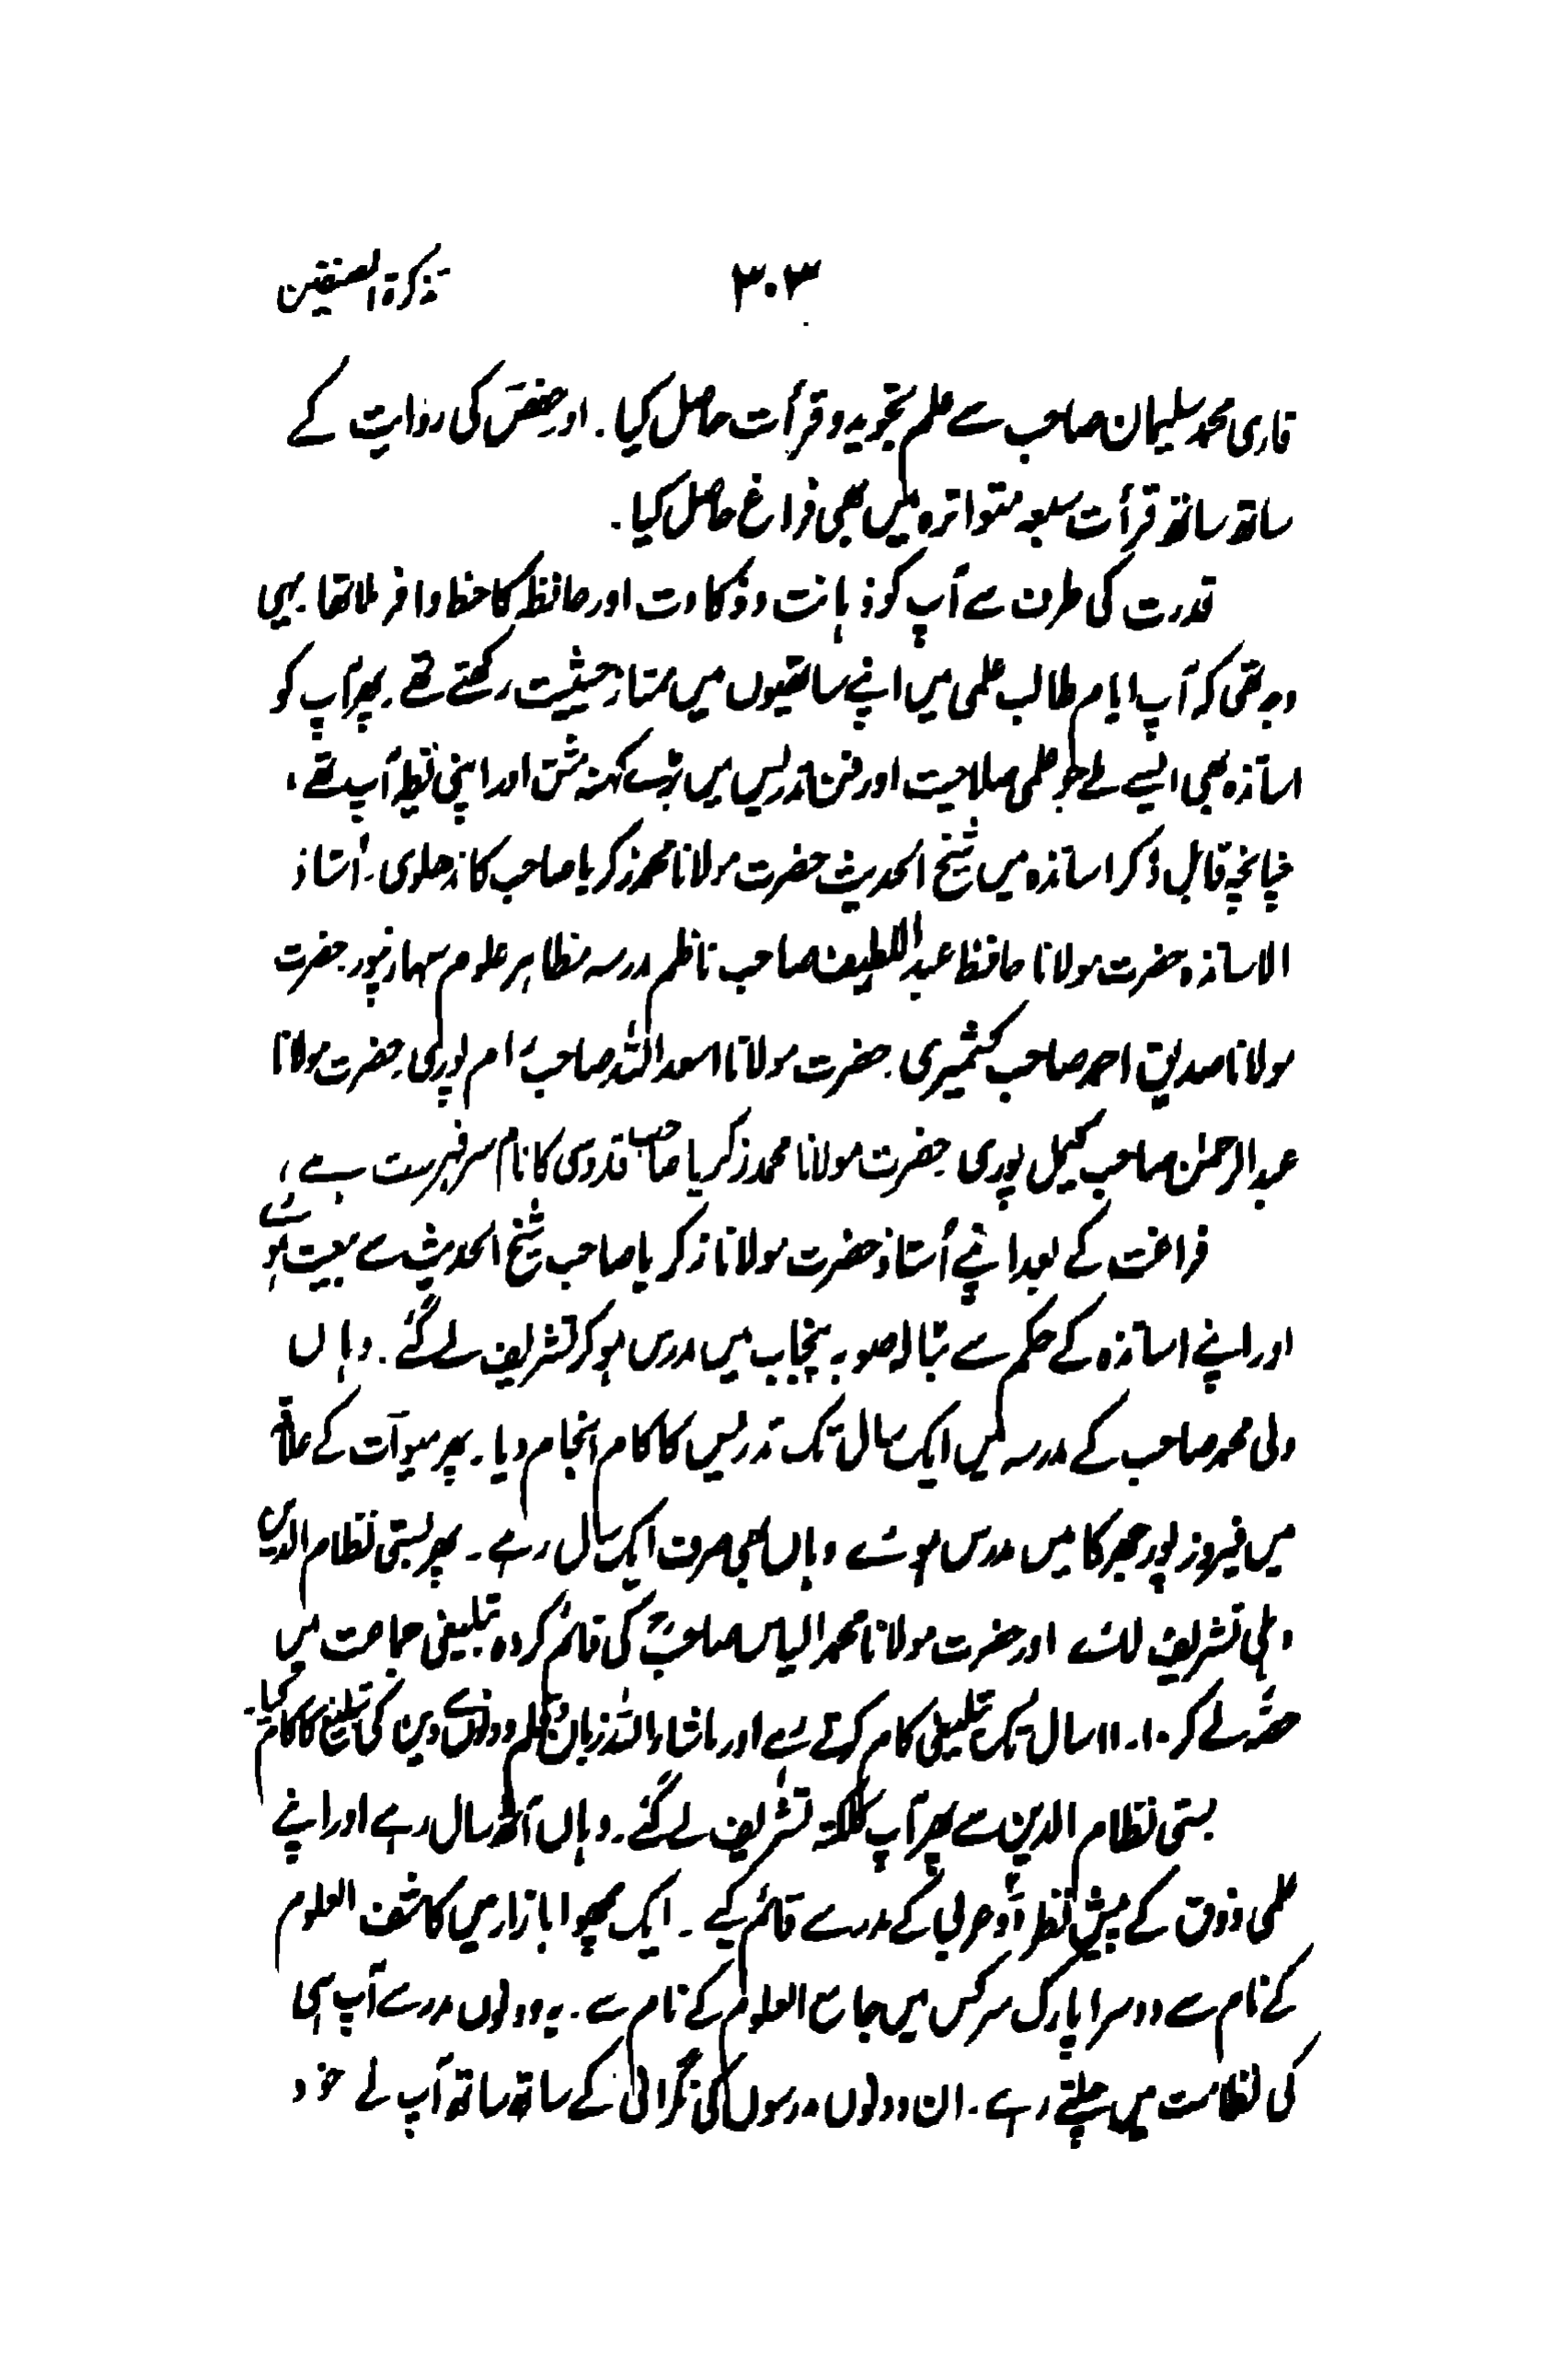 تذکرۃ المصنفین ۳۰۳
قاری محمد سلیمان صاحب سے علم تجوید و قرأت حاصل کیا. اور حفصؔ کی روایت کے
ساتھ ساتھ قرأت سبعہ متواترہ میں بھی فراغ حاصل کیا.
قدرت کی طرف سے آپ کو ذہانت وذکاوت اور حافظہ کا حظ وافر ملا تھا. یہی
وجہ تھی کہ آپ ایام طالب علمی میں اپنے ساتھیوں میں ممتاز حیثیت رکھتے تھے. پھر آپ کو
اساتذہ بھی ایسے ملے جو علمی صلاحیت اور فن تدریس میں بڑے کہنہ مشق اور اپنی نظیر آپ تھے،
چنانچہ قابل ذکر اساتذہ میں شیخ الحدیث حضرت مولانا محمد زکریا صاحب کاندھلوی. اُستاذ
الاساتذہ حضرت مولانا حافظ عبد اللطیف صاحب ناظم مدرسہ مظاہر علوم سہارنپور. حضرت
مولانا صدیق احمد صاحب کشمیری. حضرت مولانا اسعد اللہ صاحبؒ رام پوری. حضرت مولانا
عبد الرحمٰن صاحب کیمل پوری. حضرت مولانا محمد زکریا صاحب قدوسی کا نام سر فہرست ہے،
فراغت کے بعد اپنے اُستاذ حضرت مولانا زکریا صاحب شیخ الحدیث سے بیعت ہوئے
اور اپنے اساتذہ کے حکم سے بٹالہ صوبہ پنجاب میں مدرس ہو کر تشریف لے گئے. وہاں
ولی محمد صاحب کے مدرسہ میں ایک سال تک تدریس کا کام انجام دیا. پھر میوآت کے علاقہ
میں فیروز پور جھرکا میں مدرس ہوئے وہاں بھی صرف ایک سال رہے۔ پھر بستی نظام الدین
دہلی تشریف لائے اور حضرت مولانا محمد الیاس صاحبؒ کی قائم کردہ تبلیغی جماعت میں
حصّہ لے کر ۱۰۔۱۱ سال تک تبلیغی کام کرتے رہے اور ماشاء اللہ زبان و قلم دونوں سے دین کی تبلیغ کا کام کیا۔
بستی نظام الدین سے پھر آپ کلکتہ تشریف لے گئے. وہاں آٹھ سال رہے اور اپنے
علمی ذوق کے پیش نظر دو عربی کے مدرسے قائم کیے۔ ایک مچھوا بازار میں کاشف العلوم
کے نام سے دوسرا پارک سرکس میں جامع العلوم کے نام سے. یہ دونوں مدرسے آپ ہی
کی نظامت میں چلتے رہے. ان دونوں مدرسوں کی نگرانی کے ساتھ ساتھ آپ نے خود